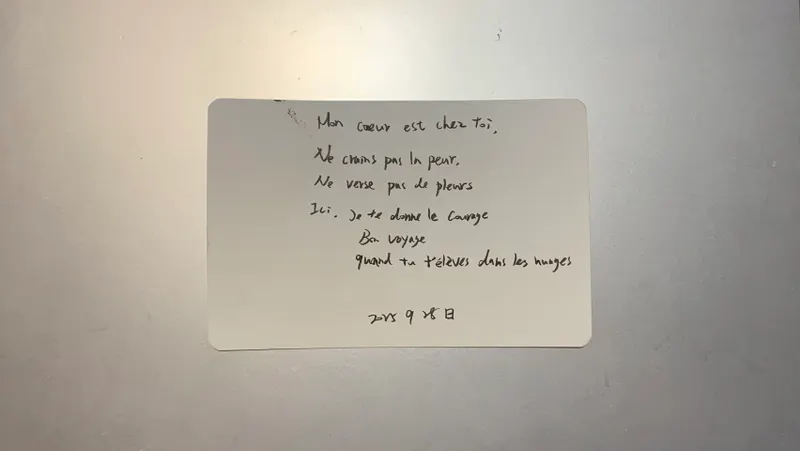 Mon coeur est chez toi.
Ne crains pas la peur.
Ne verse pas de pleurs
Ici. Je te donne le courage
Bon voyage
quand tu t'élèves dans les nuages
2025 9 28日